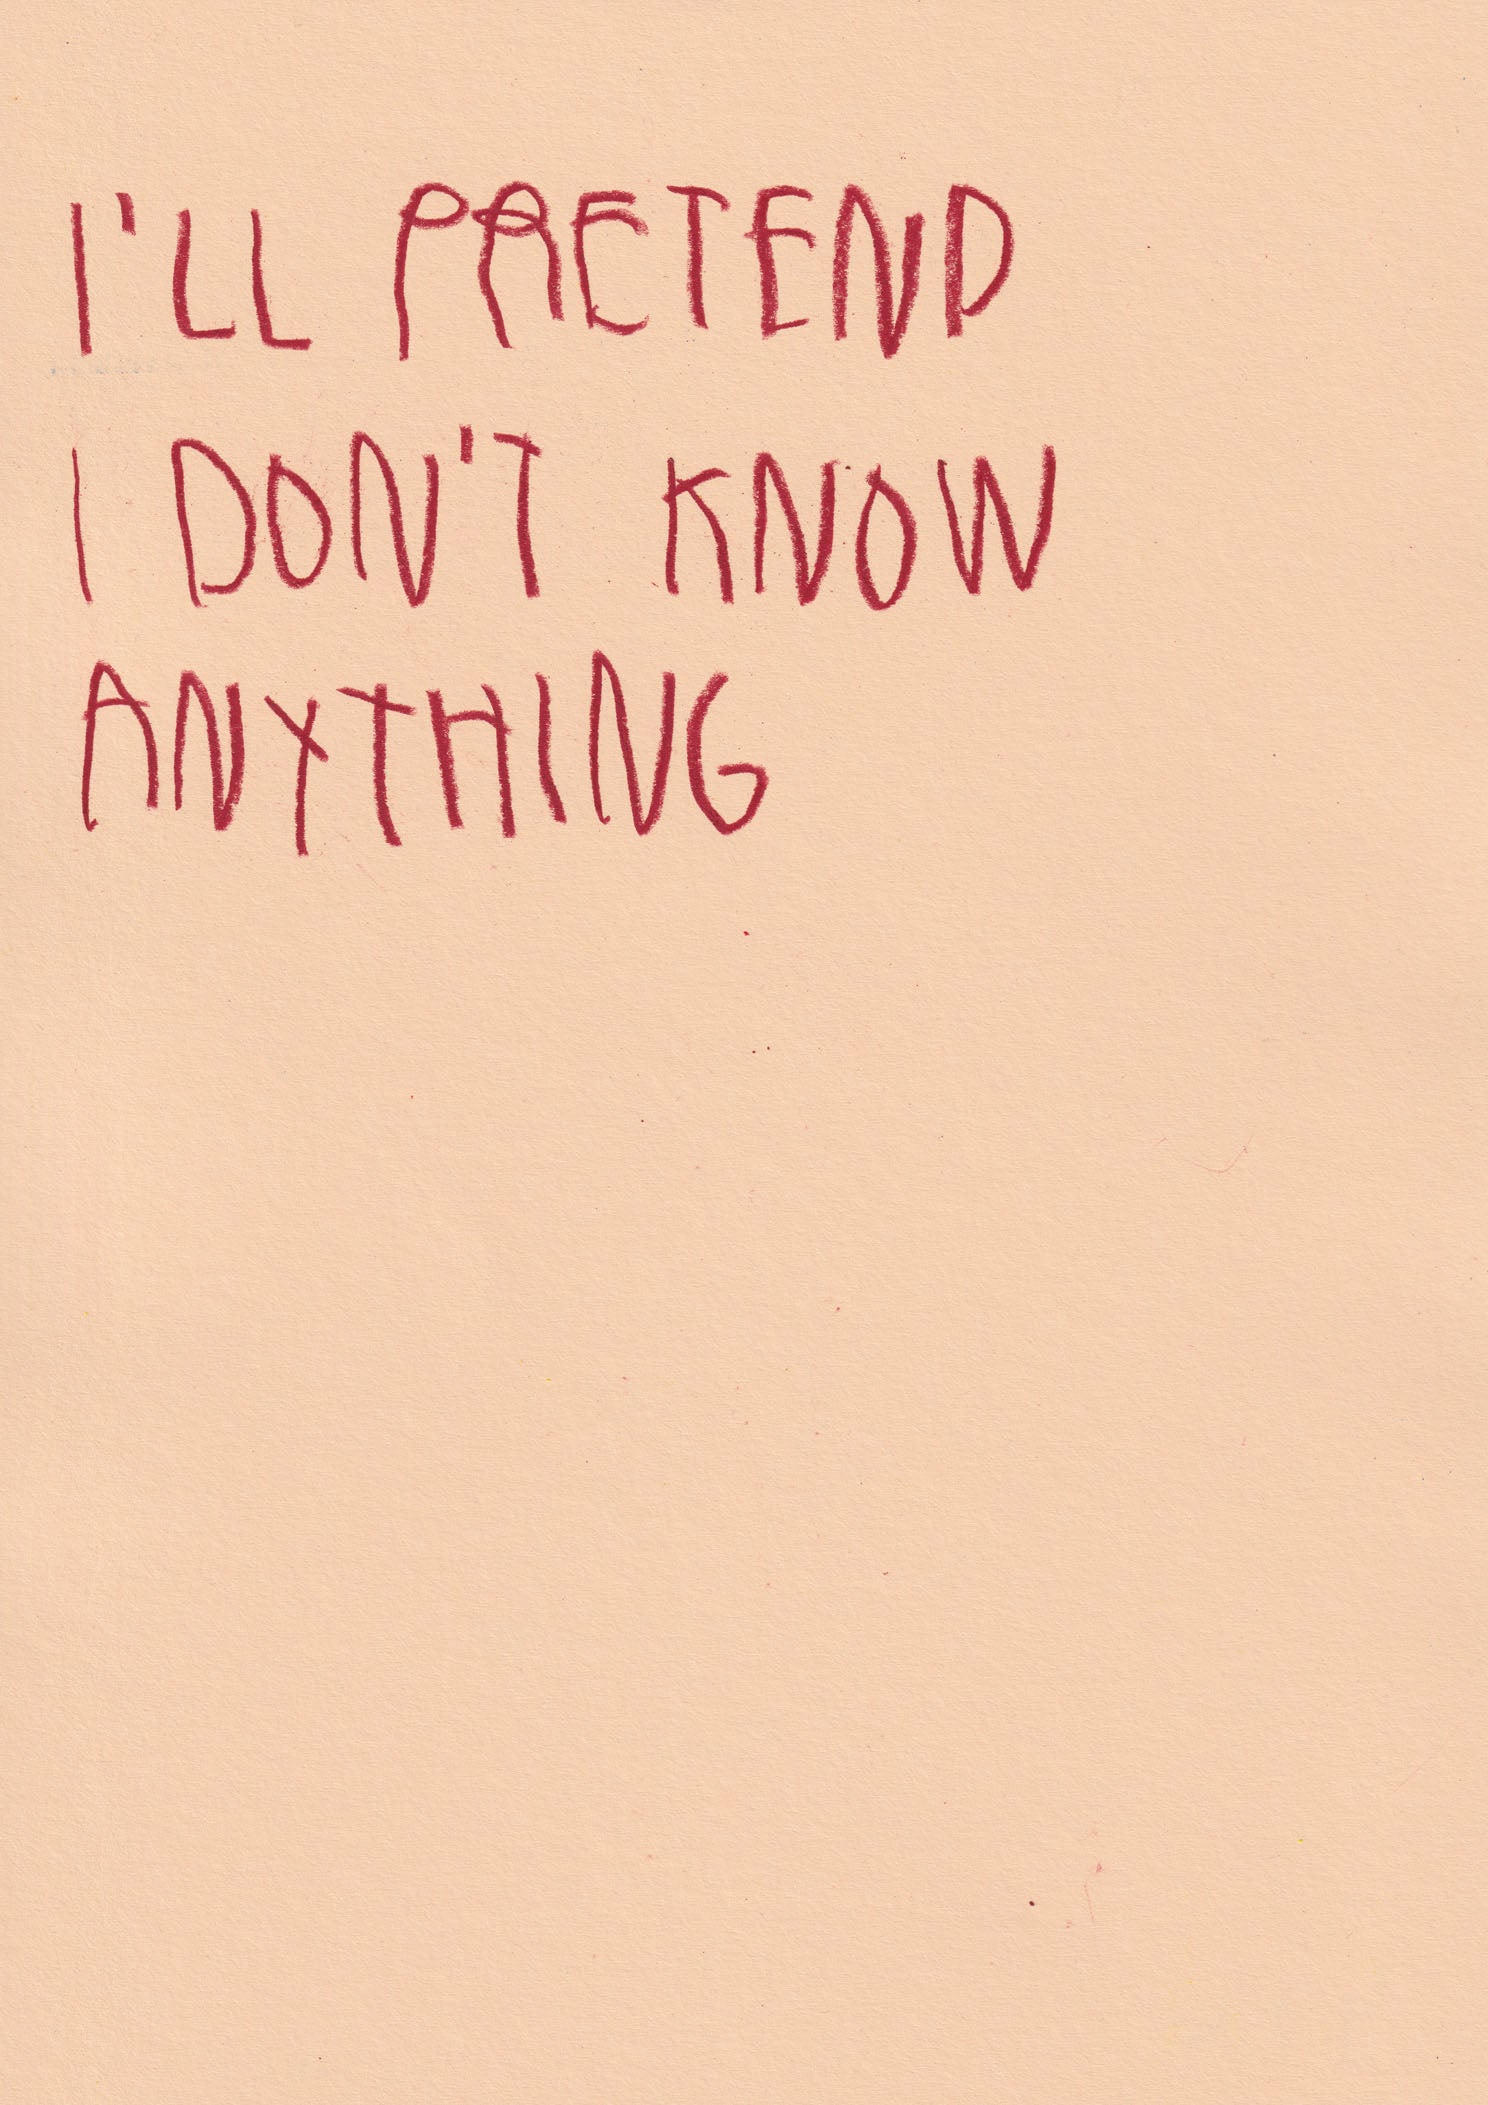 I'LL PRETEND
I DON'T KNOW
ANYTHING